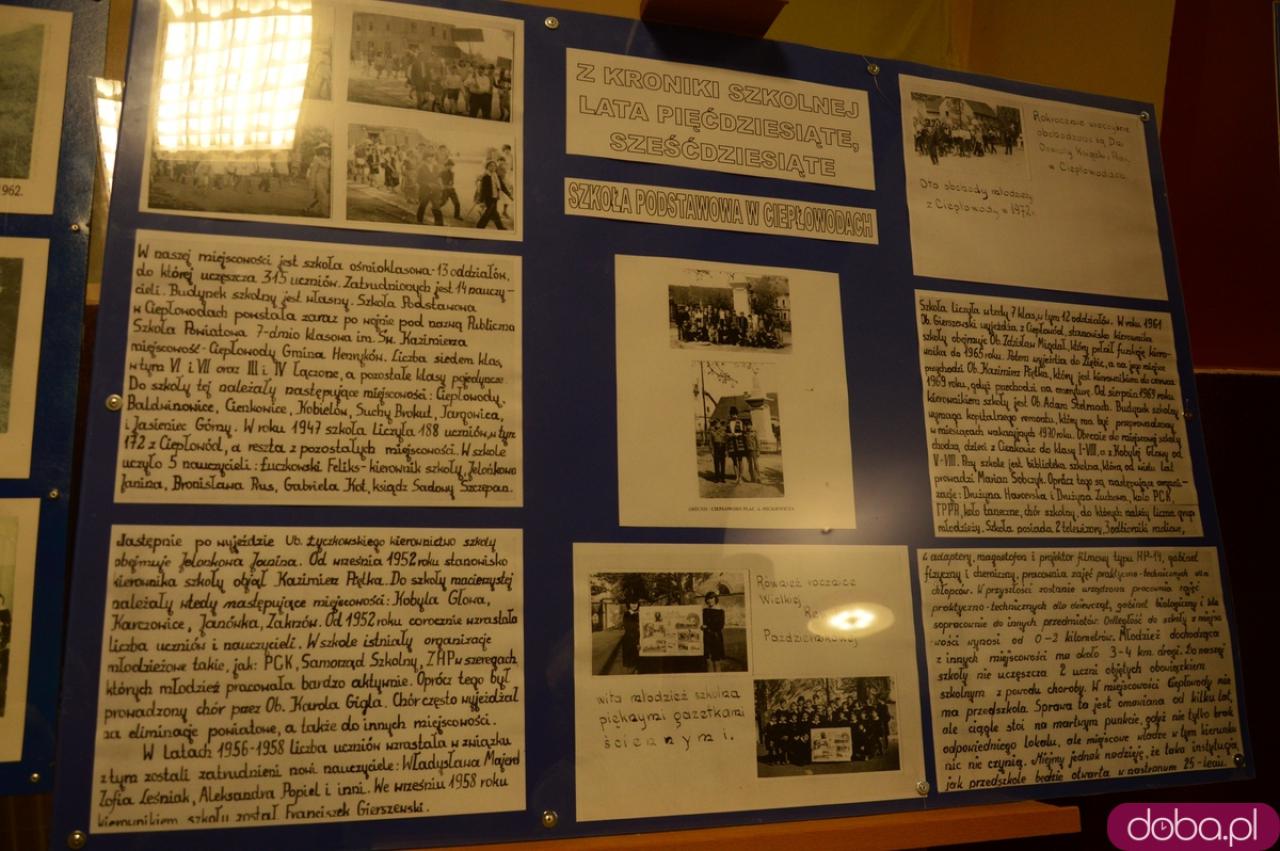 1962.
Z KRONIKI SZKOLNEJ
LATA PIĘĆDZIESIĄTE,
SZEŚĆDZIESIĄTE
SZKOŁA PODSTAWOWA W CIEPŁOWODACH
W naszej miejscowości jest szkoła ośmioklasowa-13 oddziałów,
do której uczęszcza 315 uczniów. Zatrudnionych jest 14 nauczy-
cieli. Budynek szkolny jest własny. Szkoła Podstawowa
w Ciepłowodach powstała zaraz po wojnie pod nazwą Publiczna
Szkoła Powiatowa 7-dmio klasowa im. Św. Kazimierza
miejscowość-Ciepłowody Gmina Henryków. Liczba siedem klas,
w tym VI i VII oraz III i IV łączone, a pozostałe klasy pojedyncze.
Do szkoły tej należały następujące miejscowości: Ciepłowody,
Baldwinowice, Cienkowice, Kobielów, Suchy Brokut, Jargowica,
i Jasieniec Górny. W roku 1947 szkoła liczyła 188 uczniów, w tym
172 z Ciepłowód, a reszta z pozostałych miejscowości. W szkole
uczyło 5 nauczycieli: Łuczkowski Feliks-kierownik szkoły, Jelonkowa
Janina, Bronisława Rus, Gabriela Kot, ksiądz Sadowy Szczepan.
Następnie po wyjeździe Ob. Życzkowskiego kierownictwo szkoły
obejmuje Jelonkowa Janina. Od września 1952 roku stanowisko
kierownika szkoły objął Kazimierz Piętka. Do szkoły macierzystej
należały wtedy następujące miejscowości: Kobyla Głowa,
Karczowice, Janówka, Zakrzów. Od 1952 roku corocznie wzrastała
liczba uczniów i nauczycieli. W szkole istniały organizacje
młodzieżowe takie, jak: PCK, Samorząd Szkolny, ZHP w szeregach
których młodzież pracowała bardzo aktywnie. Oprócz tego był
prowadzony chór przez Ob. Karola Gigla. Chór często wyjeżdżał
na eliminacje powiatowe, a także do innych miejscowości.
W latach 1956-1958 liczba uczniów wzrastała w związku
z tym zostali zatrudnieni nowi nauczyciele: Władysława Majord
Zofia Leśniak, Aleksandra Popiel i inni. We wrześniu 1958 roku
kierownikiem szkoły został Franciszek Gierszewski.
Również rocznicę
Wielkiej
Re
Październikowej
wita młodzież szkolna
pięknymi gazetkami
ściennymi.
Rokrocznie uroczyście
obchodzone są Dni
Oświaty Książki, 
w Ciepłowodach.
Oto obchody młodzieży
z Ciepłowody w 1972r.
Szkoła liczyła wtedy 7 klas, w tym 12 oddziałów. W roku 1961
Ob. Gierszewski wyjeżdża z Ciepłowód, stanowisko kierownika
szkoły obejmuje Ob. Zdzisław Migdał, który pełnił funkcję kiero-
wnika do 1965 roku. Potem wyjeżdża do Ziębic, a na jego miejsce
przychodzi Ob. Kazimierz Piętka, który jest kierownikiem do czerwca
1969 roku, gdyż przechodzi na emeryturę. Od sierpnia 1969 roku
kierownikiem szkoły jest Ob. Adam Stelmach. Budynek szkolny
wymaga kapitalnego remontu, który ma być przeprowadzony
w miesiącach wakacyjnych 1970 roku. Obecnie do miejscowej szkoły
chodzą dzieci z Cienkowic do klasy I-VIII, a z Kobylej Głowy od
V-VIII. Przy szkole jest biblioteka szkolna, którą od wielu lat
prowadzi Marian Sobczyk. Oprócz tego są następujące organi-
zacje: Drużyna Harcerska i Drużyna Zuchowa, koło PCK,
TPPR, koło taneczne, chór szkolny, do których należy liczna grupa
młodzieży. Szkoła posiada 2 telewizory, 3 odbiorniki radiowe,
2 adaptery, magnetofon i projektor filmowy typu AP-14, gabinet
fizyczny i chemiczny, pracownia zajęć praktyczno-technicznych dla
chłopców. W przyszłości zostanie urządzona pracownia zajęć
praktyczno-technicznych dla dziewcząt, gabinet biologiczny i
do innych przedmiotów. Odległość do szkoły z miejsco-
wości wynosi od 0-2 kilometrów. Młodzież dochodząca
z innych miejscowości ma około 3-4 km. drogi. Do naszej
szkoły nie uczęszcza 2 uczni objętych obowiązkiem
szkolnym z powodu choroby. W miejscowości Ciepłowody nie
ma przedszkola. Sprawa ta jest omawiana od kilku lat,
ale ciągle stoi na martwym punkcie, gdyż nie tylko brak
odpowiedniego lokalu, ale miejscowe władze w tym kierunku
nic nie czynią. Miejmy jednak nadzieję, że taka instytucja
jak przedszkole będzie otwarta w nastronym 25-leciu.
doba.pl